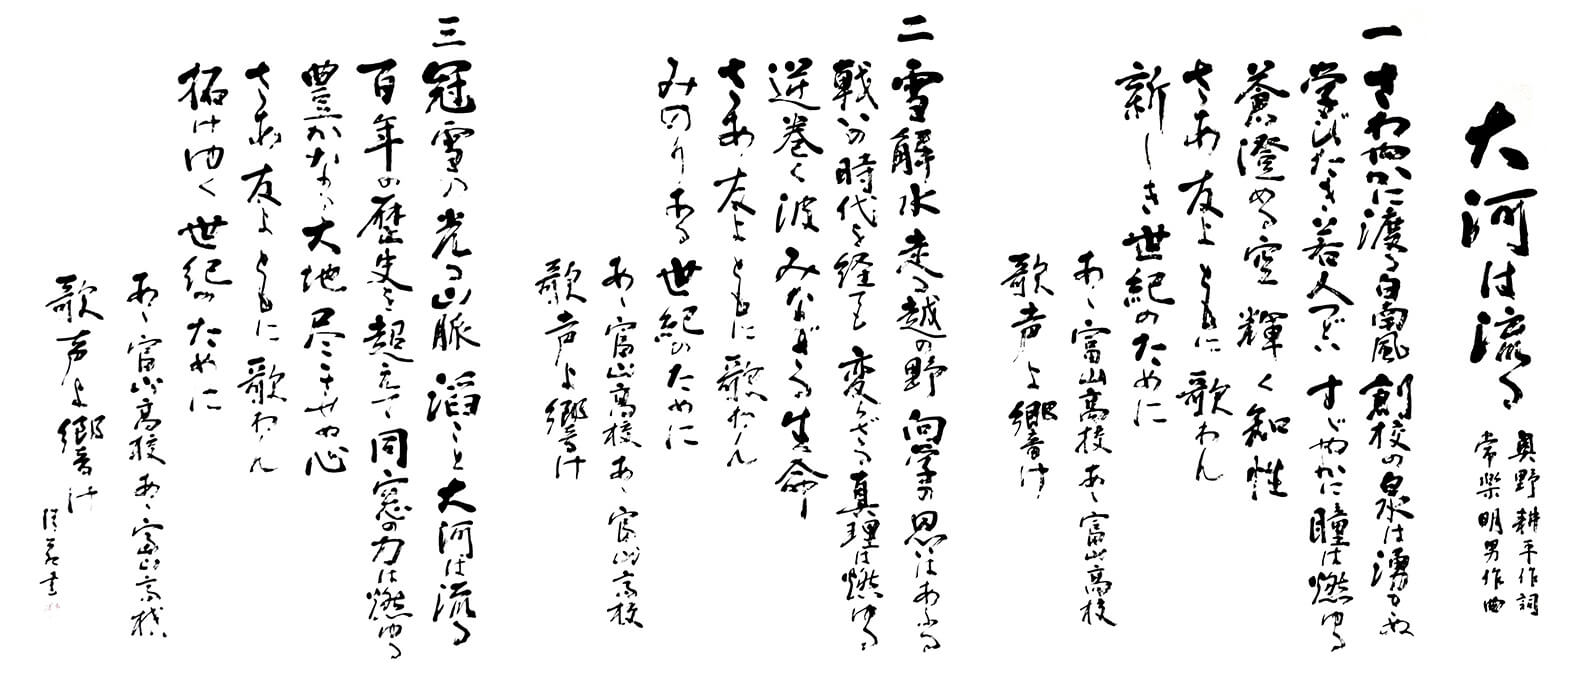 大河は流る
奥野耕平作詞
常楽明男作曲
一 さわやかに渡る白南風 創校の泉は湧きぬ
学びたき若人つどい すじやかに瞳は燃ゆる
蒼澄める空 輝く知性
さあ友よ ともに歌わん
新しき世紀のために
あゝ富山高校 あゝ富山高校
歌声よ響け
二 雪解水走る越の野 向学の思いはあふる
戦いの時代を経ても 変らざる真理は燃ゆる
逆巻く波 みなぎる生命
さあ友よ ともに歌わん
みのりある世紀のために
あゝ富山高校 あゝ富山高校
歌声よ響け
三 冠雪の光る山脈 滔々と大河は流る
百年の歴史を超えて 同窓の力は燃ゆる
豊かなる大地 尽きせぬ心
さあ友よ ともに歌わん
拓けゆく世紀のために
あゝ富山高校 あゝ富山高校
歌声よ響け